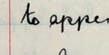 to appe